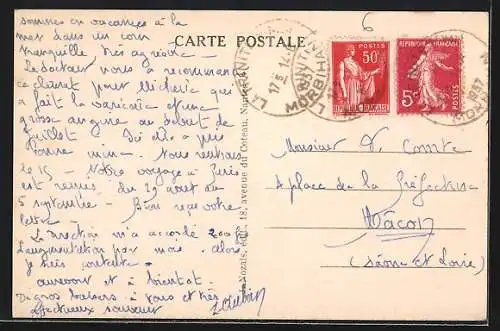 sommes en vacances à la
mer dans un coin
tranquille très agréable
Le docteur nous a recommandé
ce climat pour Michéric qui
a fait la varicelle et une
grosse angine au début de
Juillet
bonne mine. Nous rentrons
le 15 - Notre voyage à Paris
est remis du 29 août au
5 septembre. Bien reçu votre
lettre.
La Direction m'a accordé 200 frs
d'augmentation par mois. Alors
je suis contente.
au revoir et à bientôt.
De gros baisers à vous et très
affectueux souvenir
CARTE POSTALE
Nozais, édit., 18, avenue du Coteau, Nantes
LA TRINITÉ
MORBIHAN
1937
6
POSTES
50c
RÉPUBLIQUE FRANÇAISE
RÉPUBLIQUE FRANÇAISE
5c
POSTES
Monsieur V. Comte
4 place de la Préfecture
Mâcon
(Saône et Loire)